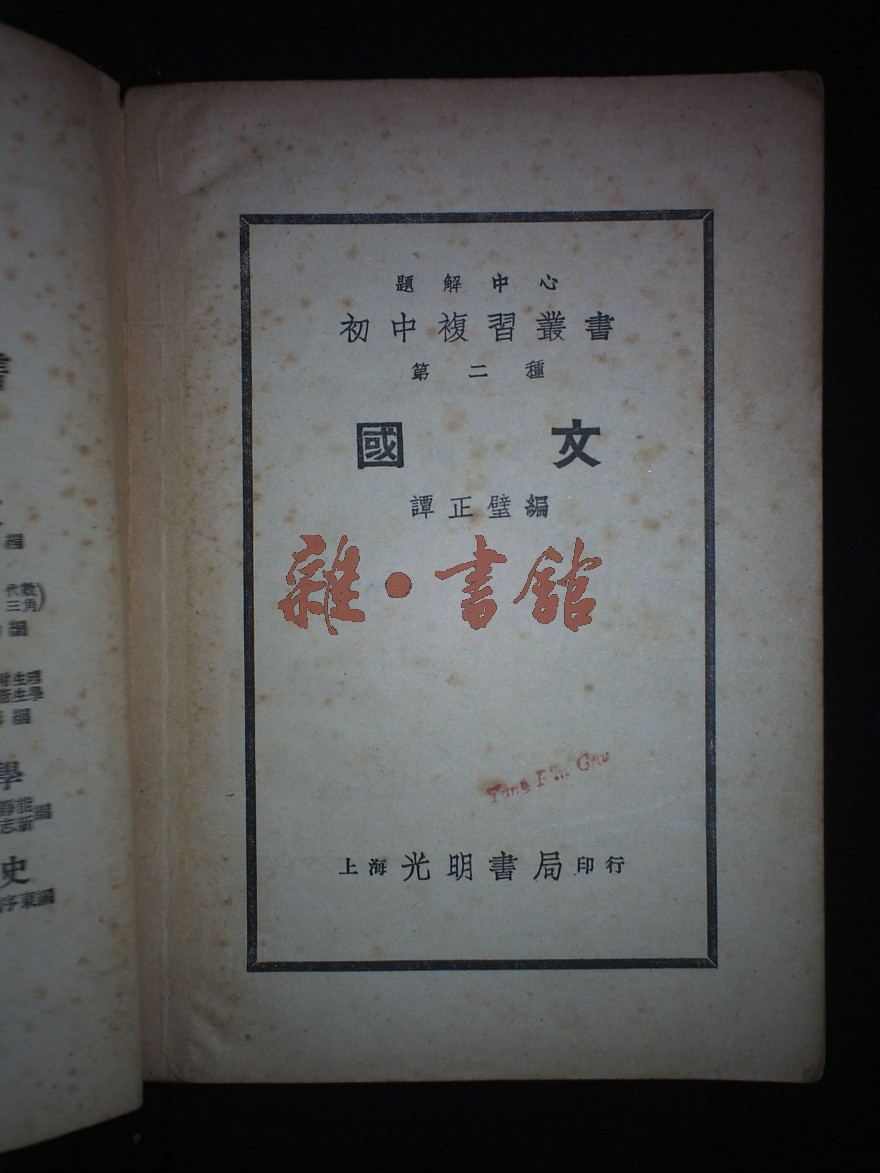 題解中心
初中複習叢書
第二種
國文
譚正璧編
雜·書館
上海光明書局印行
書
編
代數
三角)
編
生理
衛生學
編
學
編
志新
史
東編